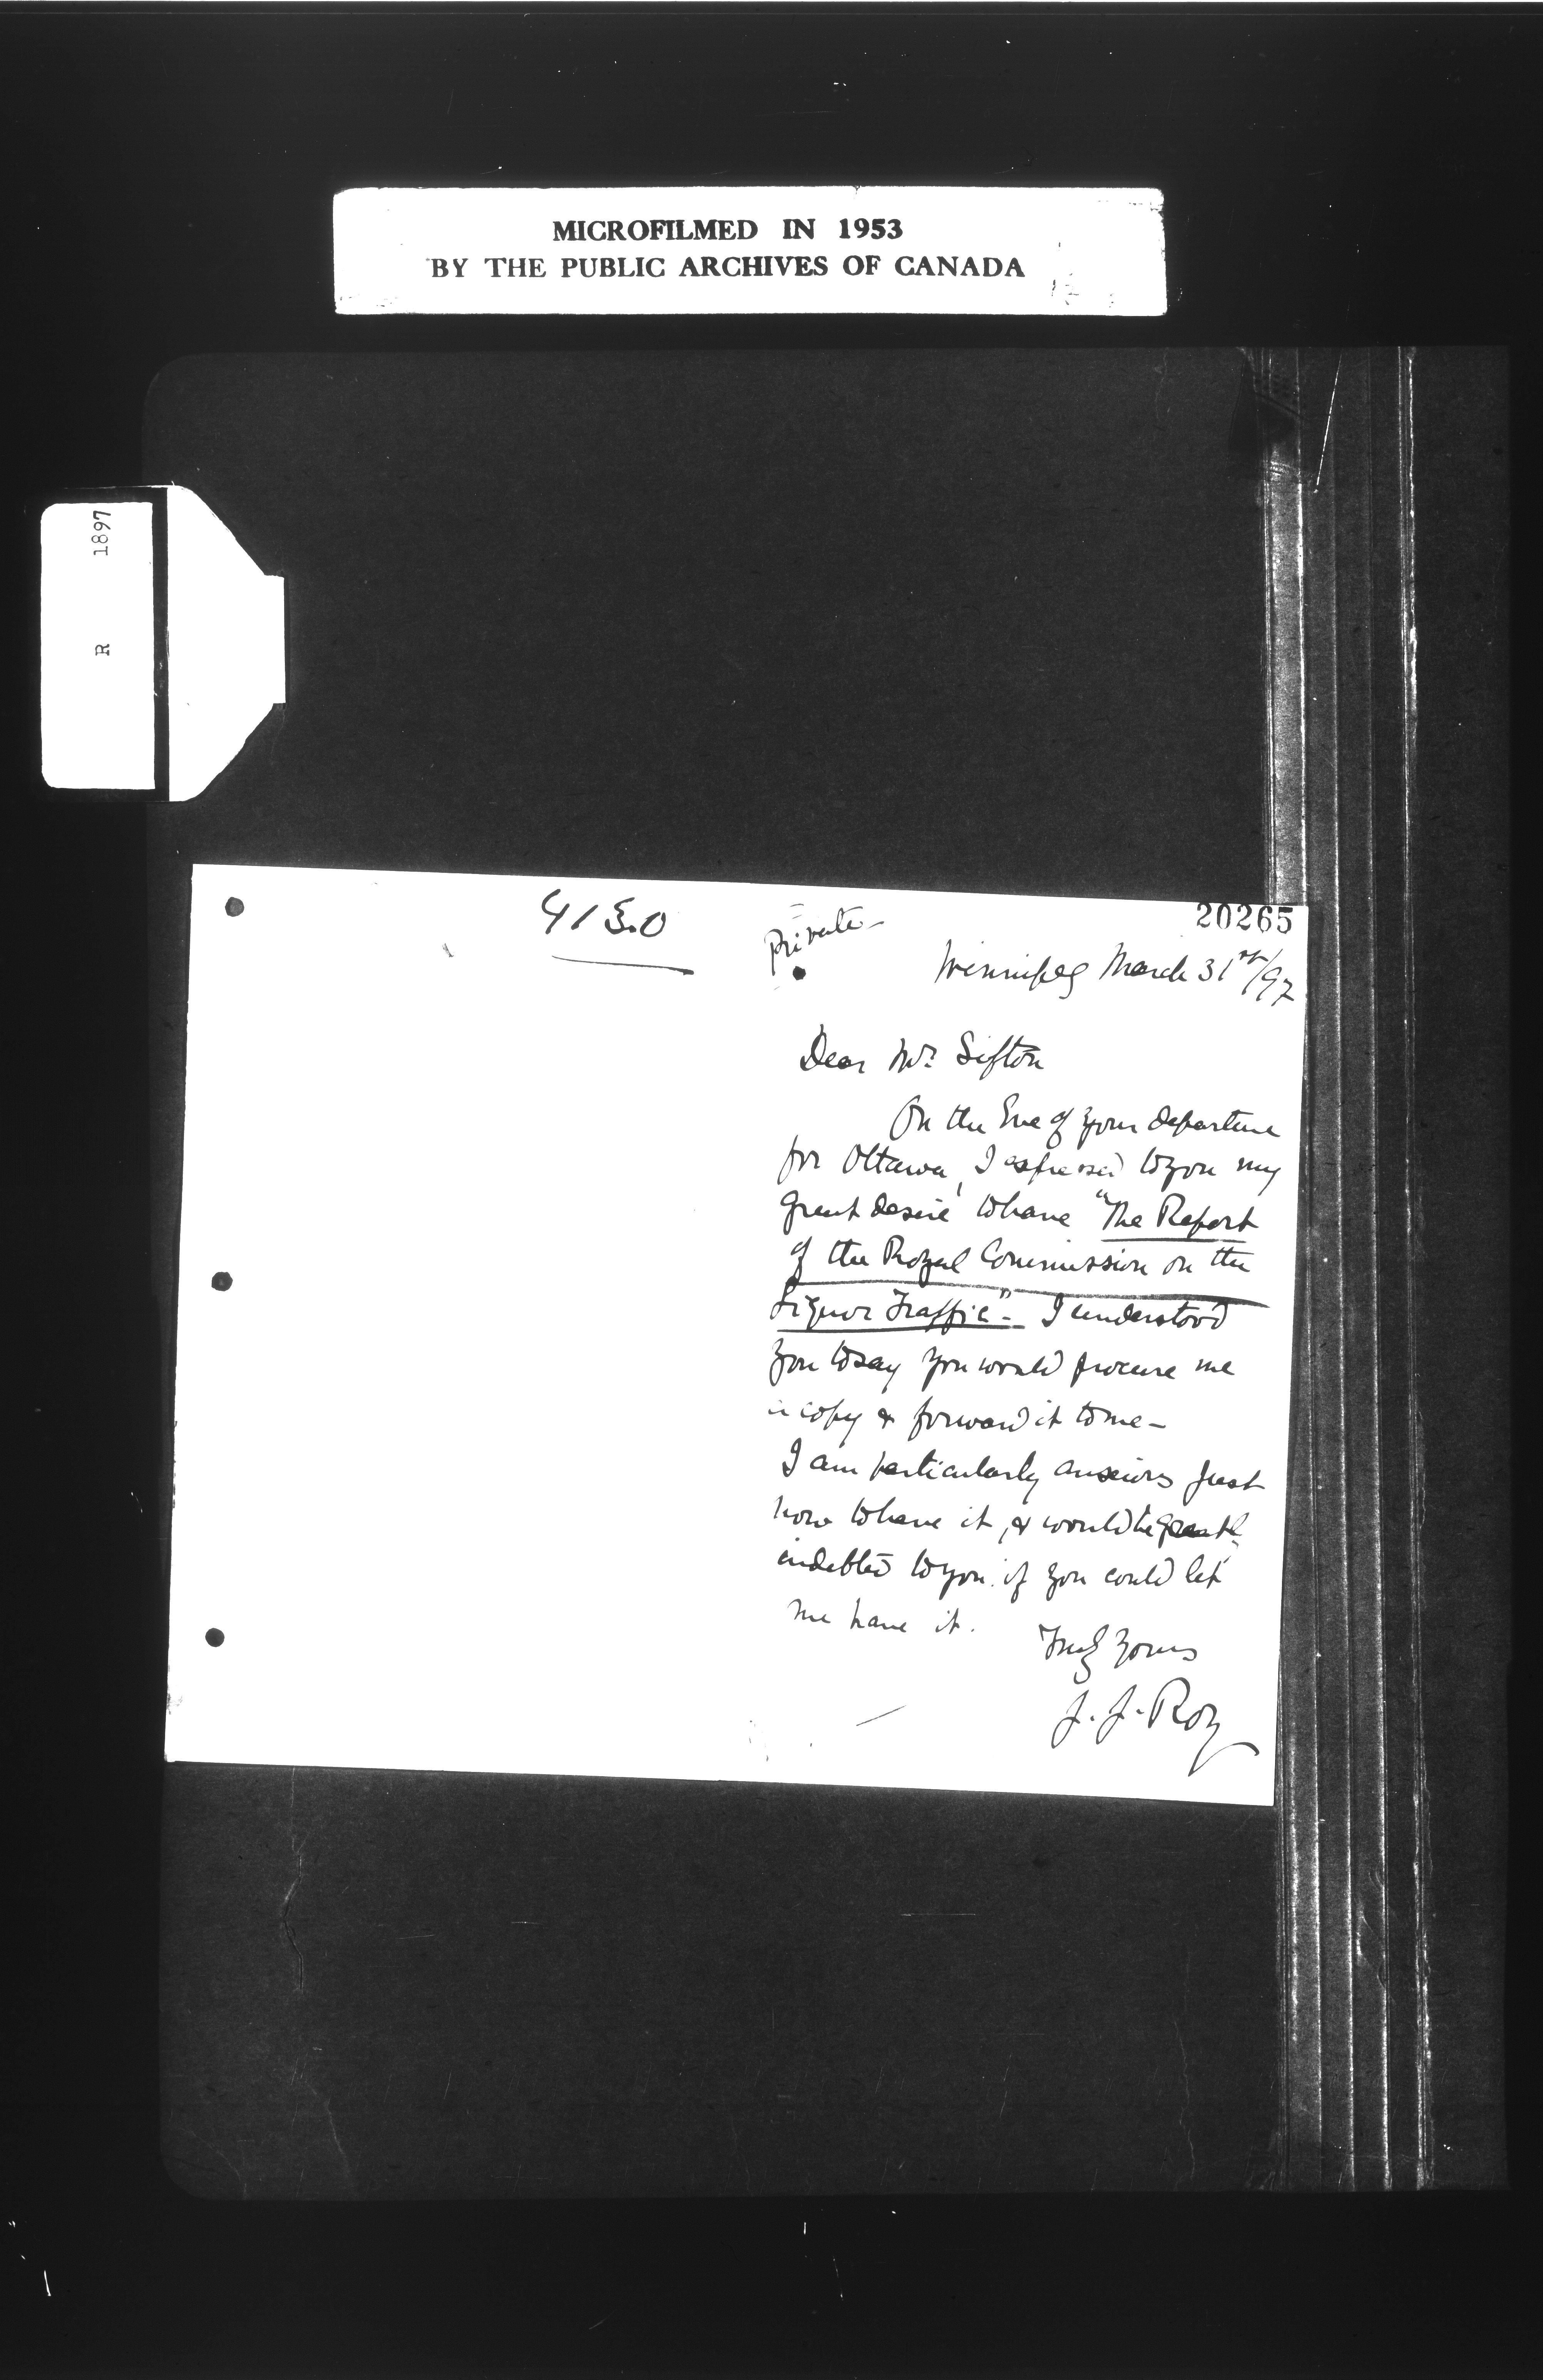 MICROFILMED IN 1953
BY THE PUBLIC ARCHIVES OF CANADA
R 1897
4150
Private-
20265
Winnipeg March 31st/97
Dear Mr. Sifton
On the Eve of your departure
for Ottawa, I expressed to you my
great desire to have "The Report
of the Royal Commission on the
Liquor Traffic"- I understood
you to say you would procure me
a copy & forward it to me-
I am particularly anxious just
now to have it, & would be greatly
indebted to you if you could let
me have it.
Truly Yours
J. J. Roy